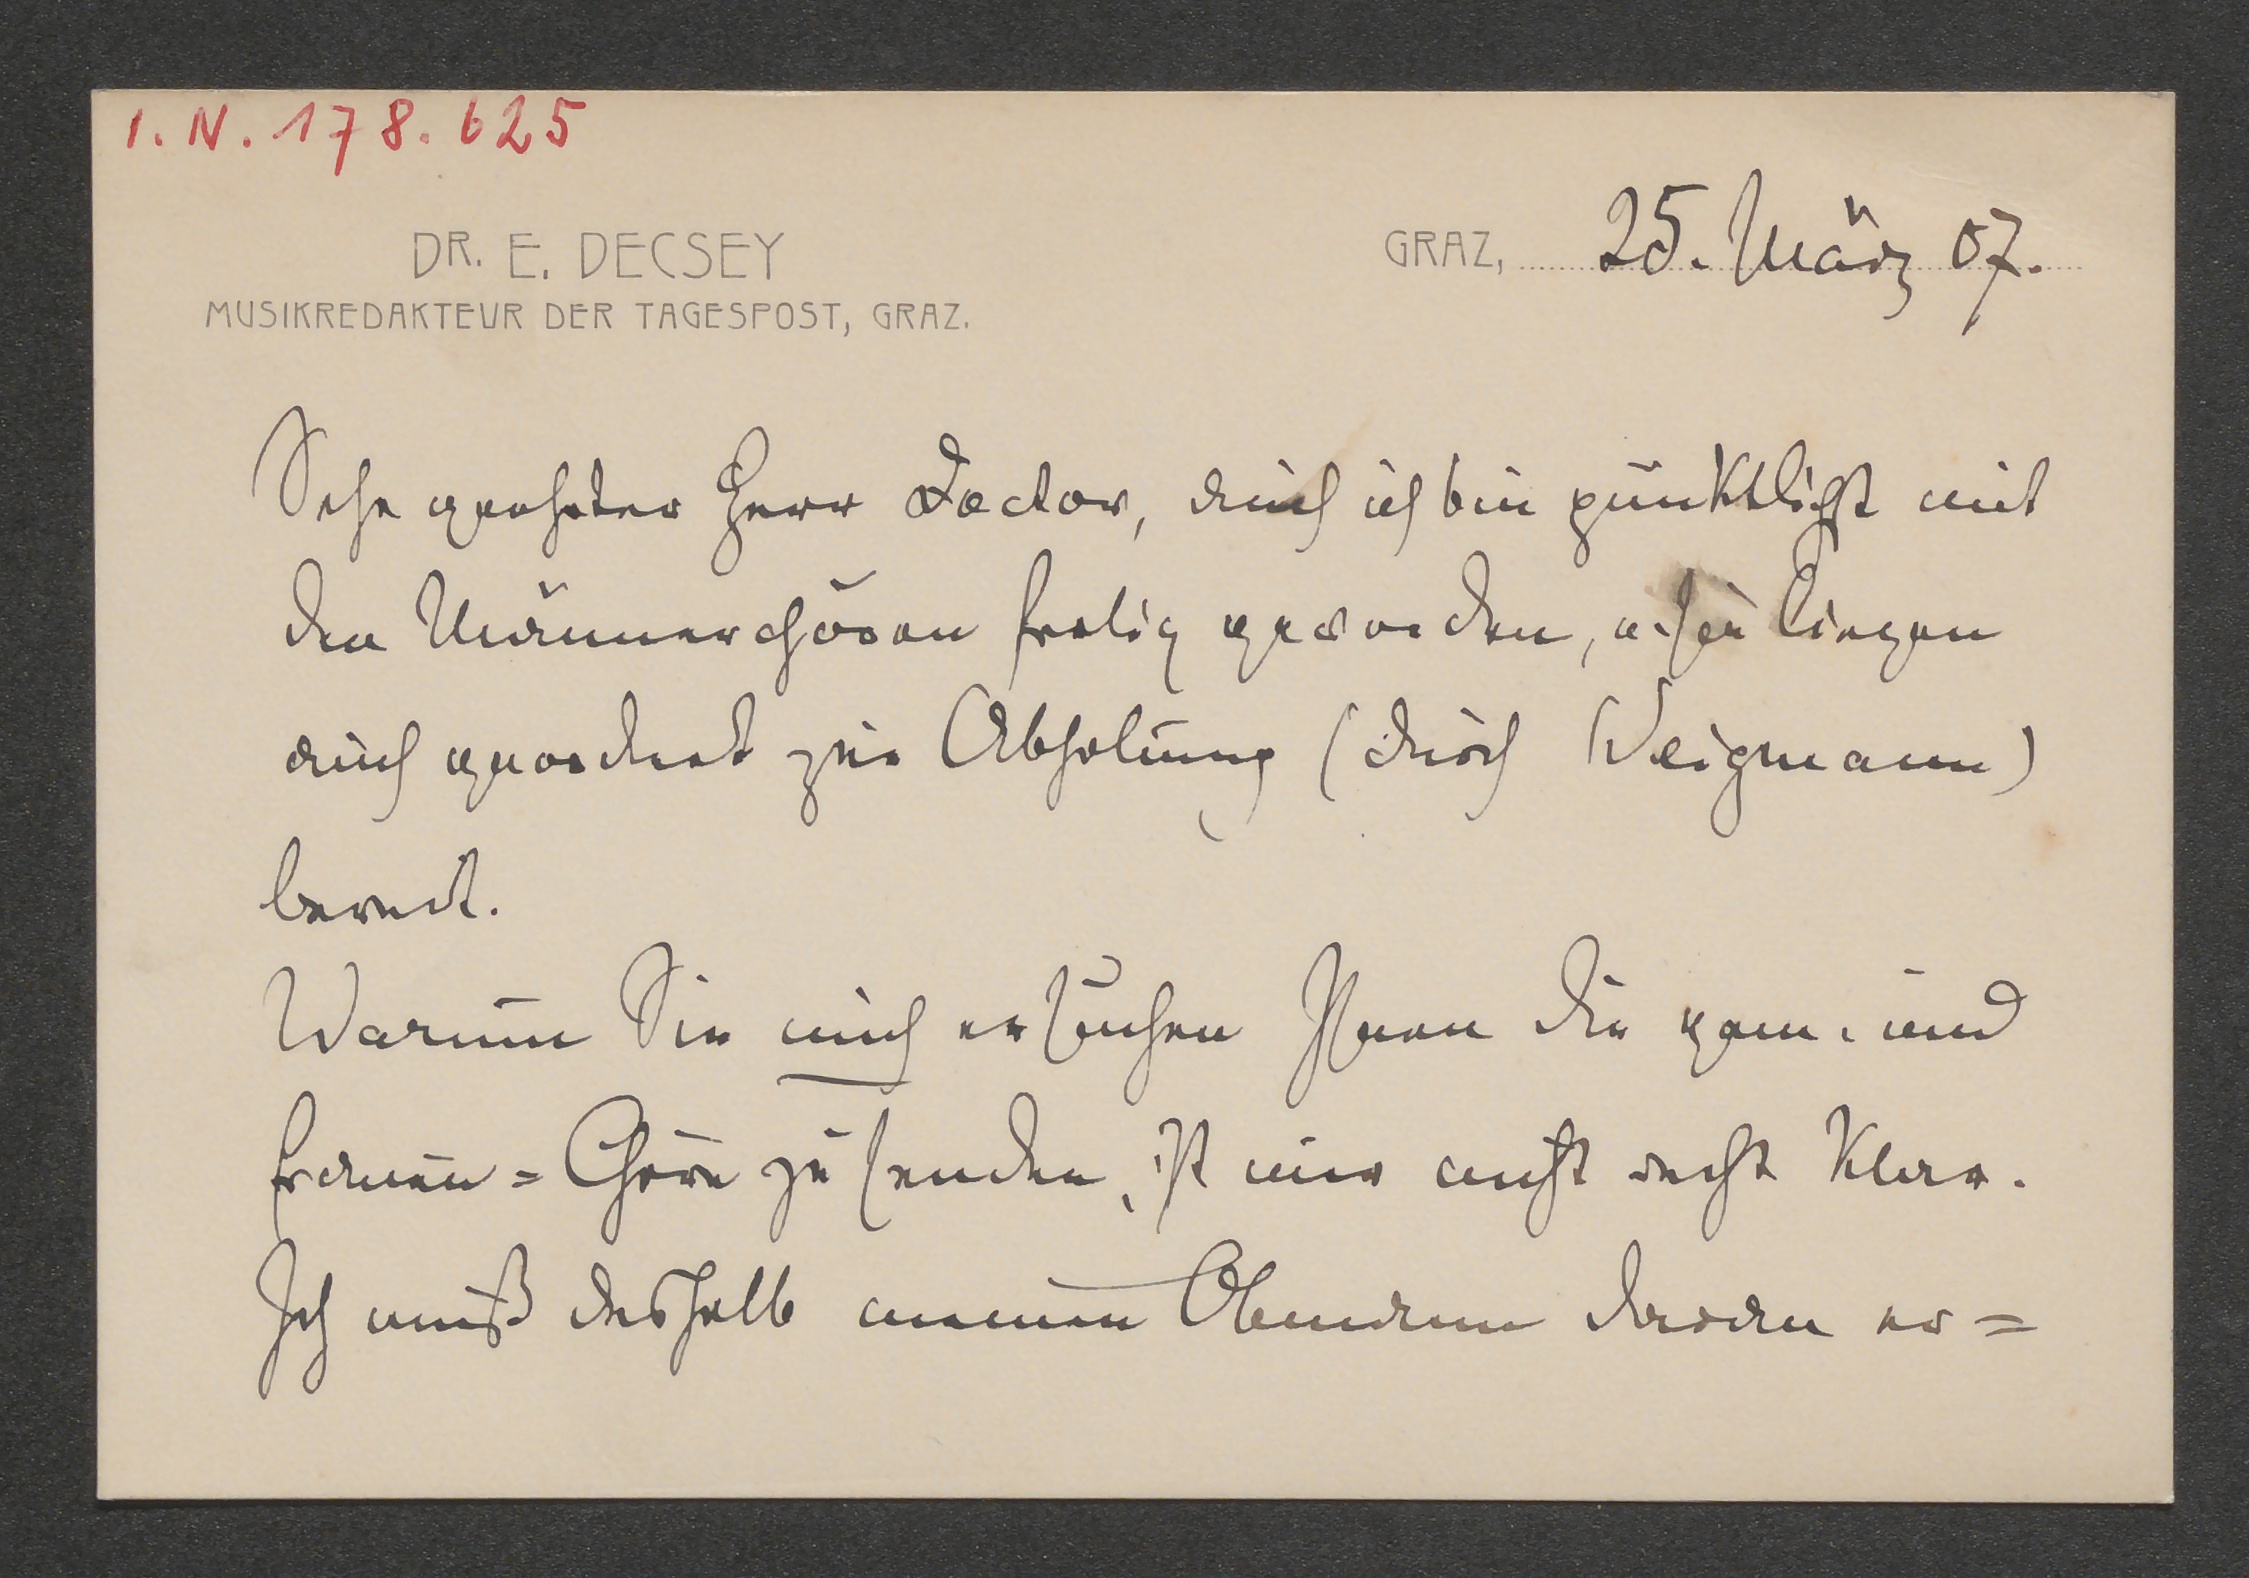 I. N. 178.625
DR. E. DECSEY
MUSIKREDAKTEUR DER TAGESPOST, GRAZ.
GRAZ, 25. März 07.
Sehr geehrter Herr Doctor, auch ich bin pünktlichst mit
den Männerchören fertig geworden, u. sie liegen
auch geordnet zur Abholung (durch Weigmann)
bereit.
Warum Sie mich ersuchen Ihnen die gem. und
Frauen=Chöre zu senden, ist mir nicht recht klar.
Ich muß deshalb meinen Obmann daran er=